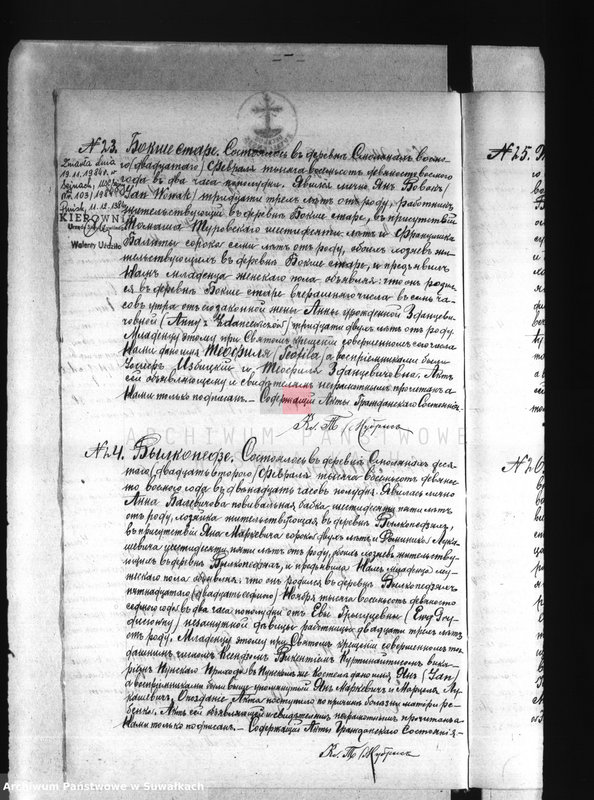 №23. Бокше старе. Состоялось въ деревнѣ Смолянахъ восьмо-
го (двадцатаго) Февраля тысяча восемьсотъ девяносто восьмого
года въ два часа пополудни. Явился лично Янъ
(Jan Nowak) тридцати трехъ лѣтъ отъ роду, работникъ
жительствующій въ деревнѣ Бокше старе, въ присутствіи
Томаша Туровскаго шестидесяти лѣтъ и Францишка
сорока семи лѣтъ отъ роду, обоихъ хозяевъ жи-
тельствующихъ въ деревнѣ Бокше старе, и предъявилъ
Намъ младенца женскаго пола, объявляя: что онъ родил-
ся въ деревнѣ Бокше старе вчерашняго числа въ семь ча-
совъ утра отъ его законной жены Анны урожденной Зданцеви-
човной (Anny z) тридцати двухъ лѣтъ отъ роду.
Младенцу этому при Святомъ Крещеніи совершенномъ сего числа
Нами дано имя Теофиля (Teofila), а воспріемниками были
Избицкій и Теофиля Зданцевичовна. Актъ
сей объявляющему и свидѣтелямъ неграмотнымъ прочитанъ а
Нами только подписанъ. — Содержащій Акты Гражданскаго Состоянія
Кс. Т.
Zmarła dnia
19.11.1984 r. w
Sejnach
Puńsk, 11.12.
KIEROWNIK
Walenty Uździło
№24. Вылкопедзе. Состоялось въ деревнѣ Смолянахъ деся-
таго (двадцать второго) Февраля тысяча восемьсотъ девяно-
сто восьмого года въ двѣнадцать часовъ полудня. Явилась лично
Анна повивальная бабка шестидесяти пяти лѣтъ
отъ роду, хозяйка жительствующая въ деревнѣ Вылкопедзяхъ,
въ присутствіи Яна Маркевича сорока двухъ лѣтъ и Доминика Лука-
шевича шестидесяти пяти лѣтъ отъ роду, обоихъ хозяевъ жительству-
ющихъ въ деревнѣ Вылкопедзяхъ, и предъявила Намъ младенца му-
жескаго пола объявляя: что онъ родился въ деревнѣ Вылкопедзяхъ
пятнадцатаго (двадцать седьмого) Ноября тысяча восемьсотъ девяносто
седьмого года въ два часа пополудни отъ Евы (Ewy
) незамужней дѣвицы работницы двадцати трехъ лѣтъ
отъ роду. Младенцу этому при Святомъ Крещеніи совершенномъ то-
числомъ Ксендзомъ Викентіемъ вика-
ріемъ Пунскаго Прихода въ Пунскомъ же Костелѣ дано имя Янъ (Jan)
а воспріемниками были выше упомянутый Янъ Маркевичъ и Лу-
кашевичъ. Опозданіе Акта поступило по причинѣ болѣзни матери ре-
бенка. Актъ сей объявляющей и свидѣтелямъ неграмотнымъ прочитанъ а
Нами только подписанъ. — Содержащій Акты Гражданскаго Состоянія —
Кс. Т.
№25.
№26.
ARCHIWUM PAŃSTWOWE
Archiwum Państwowe w Suwałkach